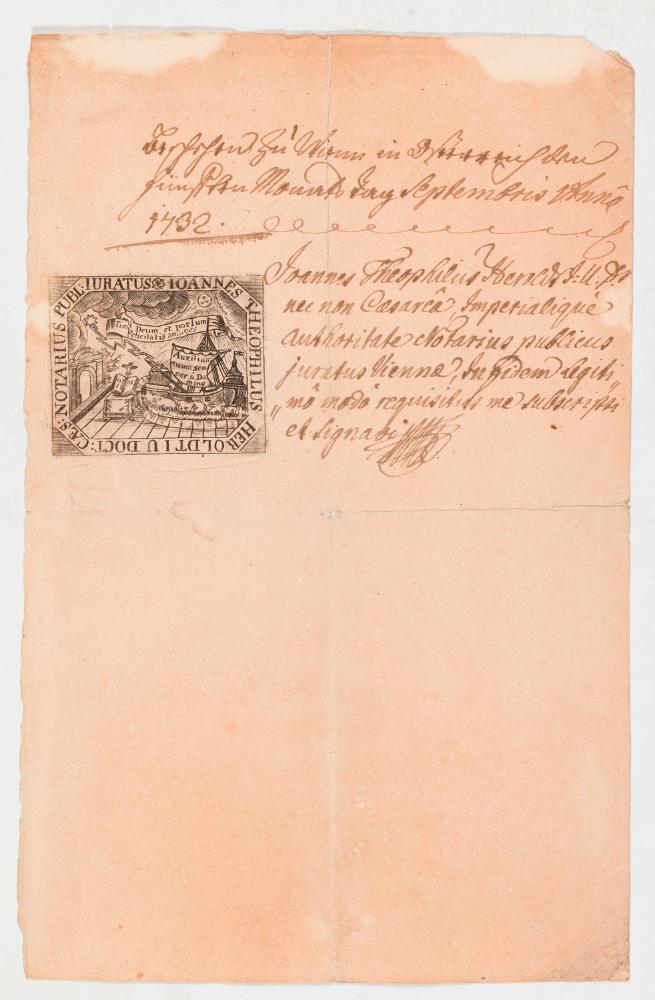 Geschehen Zu Wienn in Österreich den
fünfften Monats Tag Septembris Anno
1732.
Joannes Theophilus Heroldt J. U. Dr
nec non Cæsareâ, Imperialique
Authoritate Notarius publicus
juratus Viennæ, In fidem legiti,,
,,mô modô requisitus me subscripsi
et signavi
CÆS: NOTARIUS PUBL: IURATUS IOANNES THEOPHILUS HEROLDT I U DOCT:
Time Deum, et portum
felicitatis
Auxilium
meum sem
per à Do
mino